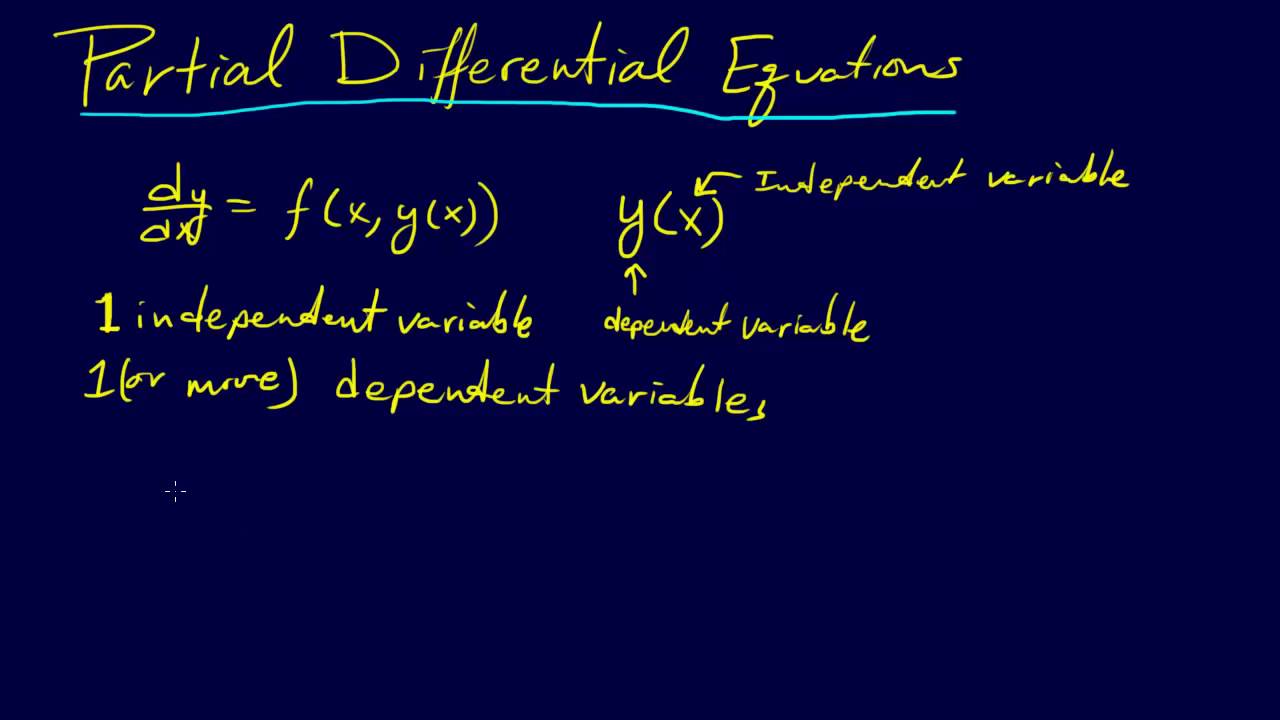 Partial Differential Equations
dy/dx = f(x, y(x))
y(x) ← Independent variable
↑
dependent variable
1 independent variable
1 (or more) dependent variables